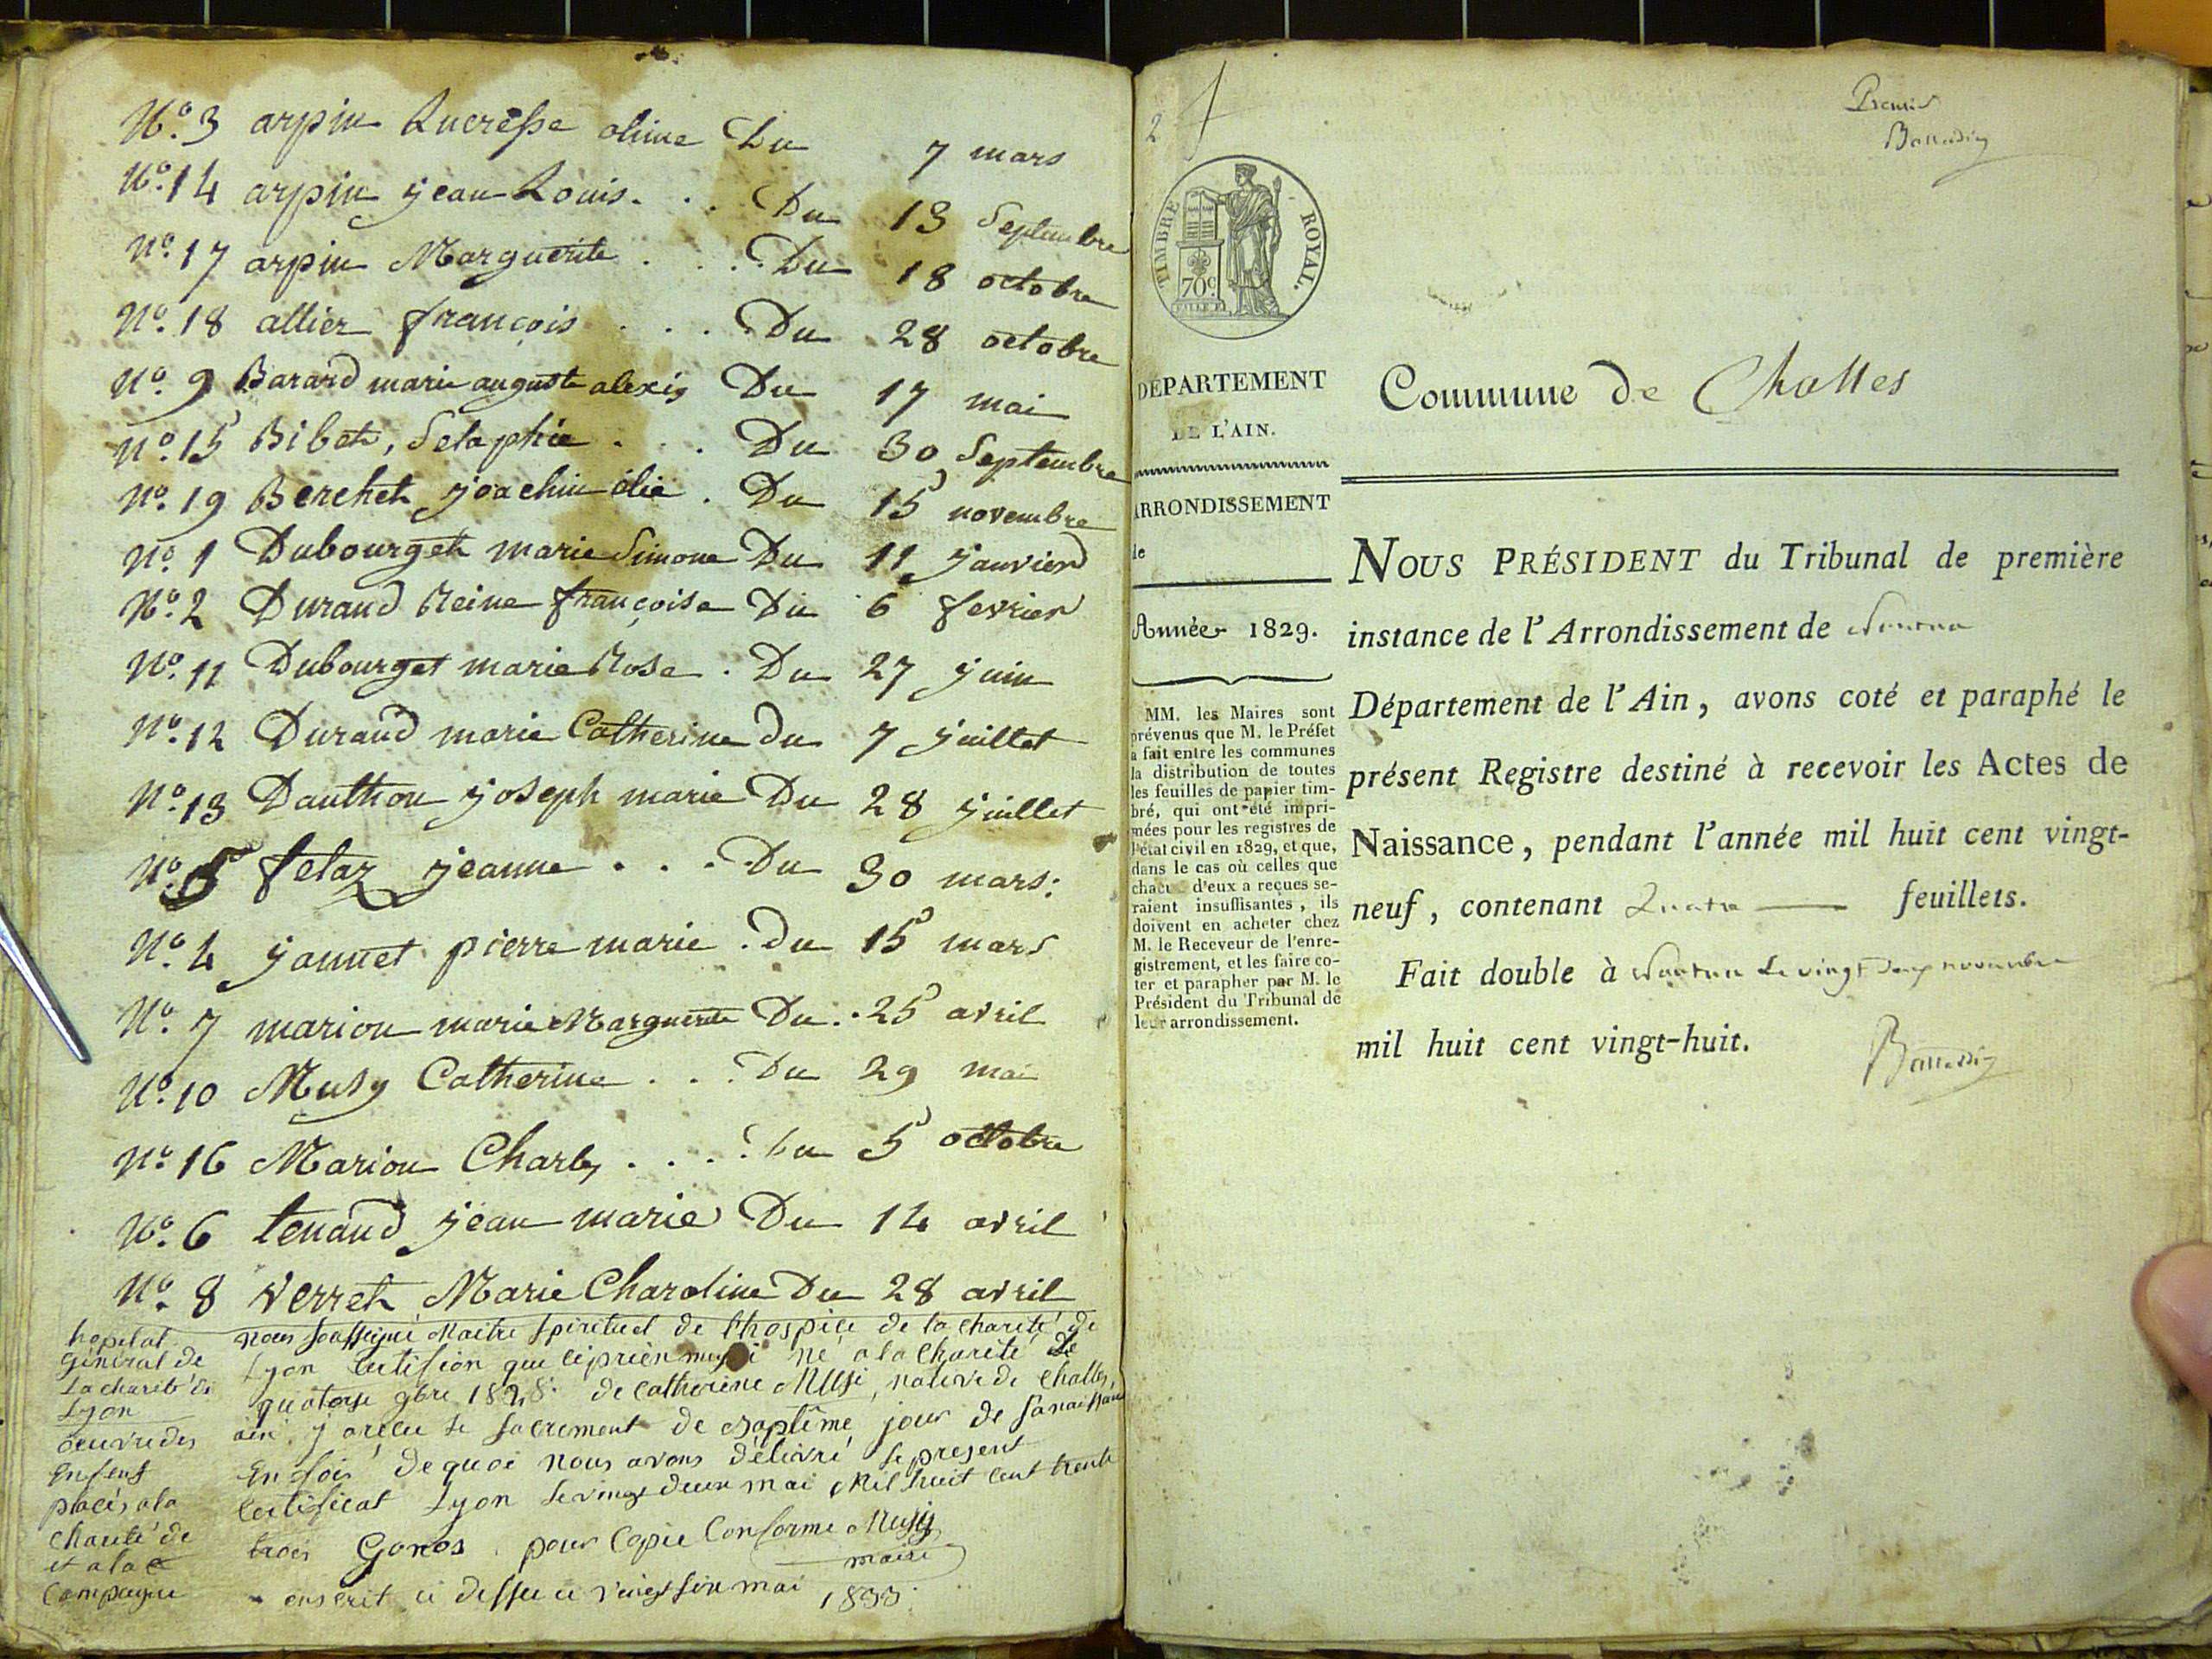 No. 3 arpin Lucresse olime Du 7 mars
No. 14 arpin jean Louis. . . Du 13 Septembre
No. 17 arpin Marguerite . . . Du 18 octobre
No. 18 allier françois . . . Du 28 octobre
No. 9 Barard marie auguste alexis Du 17 mai
No. 15 Bibet, Selaphie . . . Du 30 Septembre
No. 19 Berchet joachin élie . Du 15 novembre
No. 1 Dubourget marie Simone Du 11 janvier
No. 2 Durand Reine françoise Du 6 fevrier
No. 11 Dubourget marie Rose . Du 27 juin
No. 12 Durand marie Catherine du 7 juillet
No. 13 Dauthon joseph marie Du 28 juillet
No. 5 fetaz jeanne . . . Du 30 mars:
No. 4 jannet pierre marie . du 15 mars
No. 7 marion marie Marguerite Du . . 25 avril
No. 10 Musy Catherine . . . Du 29 mai
No. 16 Marion Charles . . . . Du 5 octobre
No. 6 tenand jean marie Du 14 avril
No. 8 Verret Marie Charoline Du 28 avril
hopital
général de
La charité de
Lyon
oeuvre des
Enfens
placés a la
Charité de
et a la
Campagne
nous soussigné Maitre spirituel de l'hospice de la charité de
Lyon Certifion que ciprien né a la Charité le
quatorze 9bre 1828. de Catherine Musi, native de Challes,
ain, y a reçu le sacrement de Baptême jour de sa naissance
En fois de quoi nous avons délivré le present
Certificat Lyon le vingt deux mai Mil huit cent trente
trois Gonos pour Copie Conforme Musy
maire
enscrit ci dessu ce vingt six mai 1833.
2
Premier
TIMBRE ROYAL.
70c
DÉPARTEMENT
DE L'AIN.
ARRONDISSEMENT
de
Année 1829.
MM. les Maires sont
prévenus que M. le Préfet
a fait entre les communes
la distribution de toutes
les feuilles de papier tim-
bré, qui ont été impri-
mées pour les registres de
l'état civil en 1829, et que,
dans le cas où celles que
chacun d'eux a reçues se-
raient insuffisantes, ils
doivent en acheter chez
M. le Receveur de l'enre-
gistrement, et les faire co-
ter et parapher par M. le
Président du Tribunal de
leur arrondissement.
Commune de Challes
NOUS PRÉSIDENT du Tribunal de première
instance de l'Arrondissement de Nantua
Département de l'Ain, avons coté et paraphé le
présent Registre destiné à recevoir les Actes de
Naissance, pendant l'année mil huit cent vingt-
neuf, contenant Quatre feuillets.
Fait double à Nantua le vingt deux novembre
mil huit cent vingt-huit.